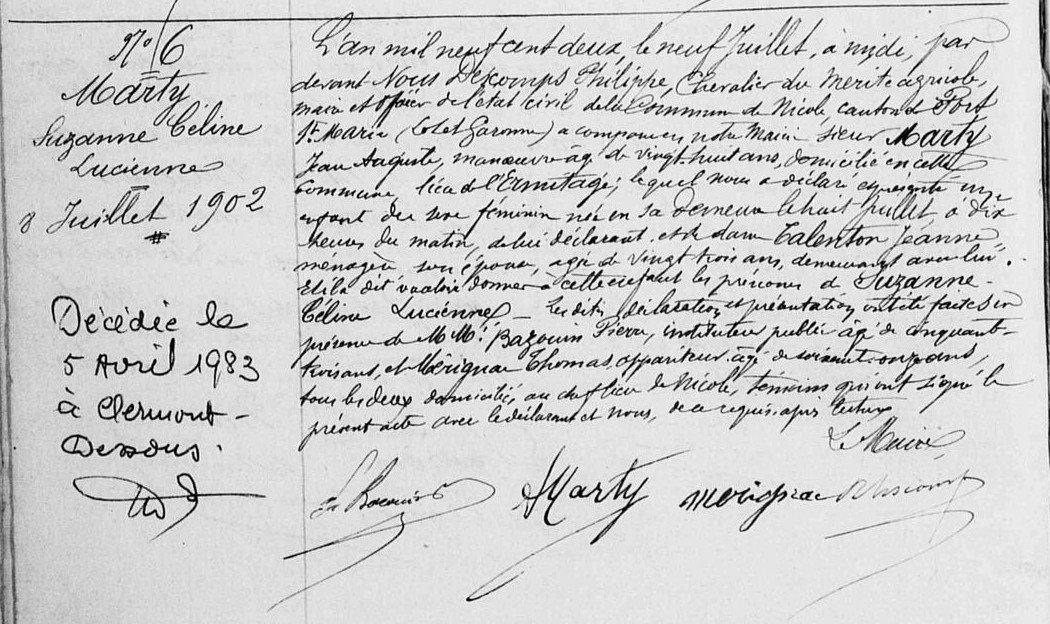 N° 6
Marty
Suzanne Céline
Lucienne
8 Juillet 1902
Décédée le
5 Avril 1983
à Clermont-
Dessous.
L'an mil neuf cent deux, le neuf Juillet, à midi, par
devant Nous Descomps Philippe, Chevalier du Mérite agricole,
maire et officier de l'état civil de la Commune de Nicole, canton de Port
Ste Marie (Lot et Garonne) a comparu en notre Mairie sieur Marty
Jean Auguste, manœuvre âgé de vingt-huit ans, domicilié en cette
Commune, lieu de l'Ermitage; lequel nous a déclaré et présenté un
enfant du sexe féminin née en sa demeure le huit Juillet, à dix
heures du matin, de lui déclarant et de dame Talenton Jeanne,
ménagère, son épouse, agée de vingt trois ans, demeurant avec lui.
Et il a dit vouloir donner à cette enfant les prénoms de Suzanne-
Céline Lucienne_ Les dites déclaration et présentation ont été faites en
présence de M.M.rs Bazouin Pierre, instituteur public âgé de cinquante-
trois ans, et Mérignac Thomas, appariteur, âgé de soixante onze ans,
tous les deux domiciliés au chef lieu de Nicole, témoins qui ont signé le
présent acte avec le déclarant et nous, de ce requis, après lecture
Le Maire,
Marty Merignac Descomps